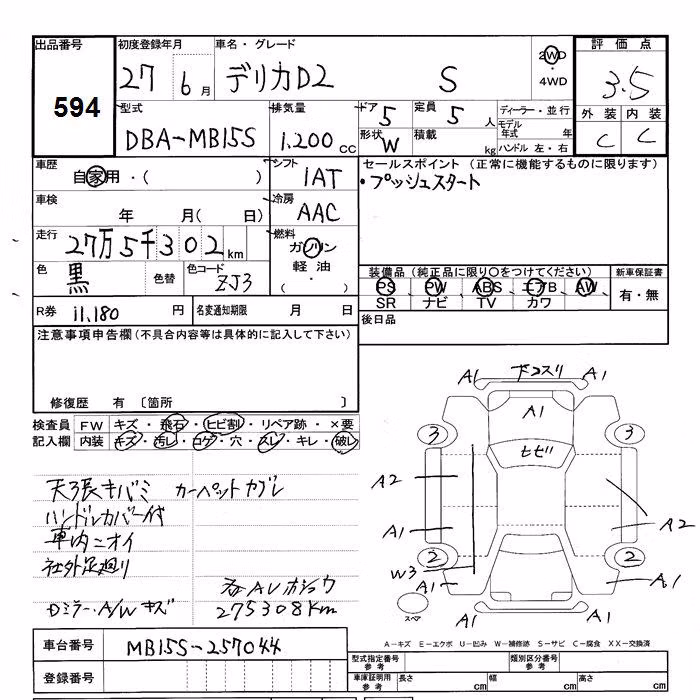 出品番号 初度登録年月 車名・グレード 評価点
594 27 6月 デリカD2 S 2WD・4WD 3.5
外装 内装
C C
型式 排気量 ドア 5 定員 5人 ディーラー・並行
DBA-MB15S 1,200cc 形状 W 積載 kg モデル年式 年
ハンドル 左・右
車歴 シフト セールスポイント (正常に機能するものに限ります)
自家用・( ) 1AT ・プッシュスタート
車検 冷房
年 月( 日) AAC
走行 燃料
27万5千302km ガソリン
軽油
( ・ )
色 黒 色替 色コード ZJ3
装備品(純正品に限り○をつけてください) 新車保証書
PS PW ABS エアB AW 有・無
SR ナビ TV カワ
R券 11,180円 名変通知期限 月 日
後日品
注意事項申告欄(不具合内容等は具体的に記入して下さい)
修復歴 有 〔箇所 〕
検査員記入欄 FW キズ・飛石・ヒビ割・リペア跡・×要
内装 キズ・汚レ・コゲ・穴・スレ・キレ・破レ
天張キバミ カーペットヤブレ
ハンドルカバー付
車内ニオイ
社外足廻り
Dミラー・A/Wキズ
275308km
A1 下コスリ A1
A1
3 3
ヒビ
A2
A1 A2
2 2
W3
A1 A1
スペア
A-キズ E-エクボ U-凹み W-補修跡 S-サビ C-腐食 XX-交換済
車台番号 MB15S-257044
登録番号
型式指定番号 参考 類別区分番号 参考
車庫証明用 参考 長さ cm 幅 cm 高さ cm